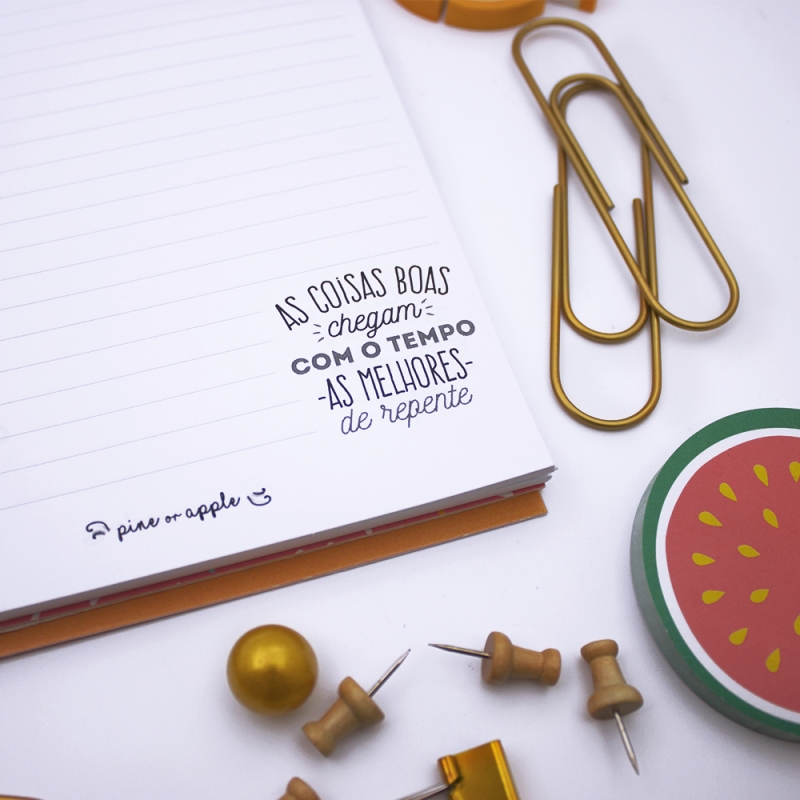 AS COISAS BOAS
chegam
COM O TEMPO
-AS MELHORES-
de repente
pine or apple